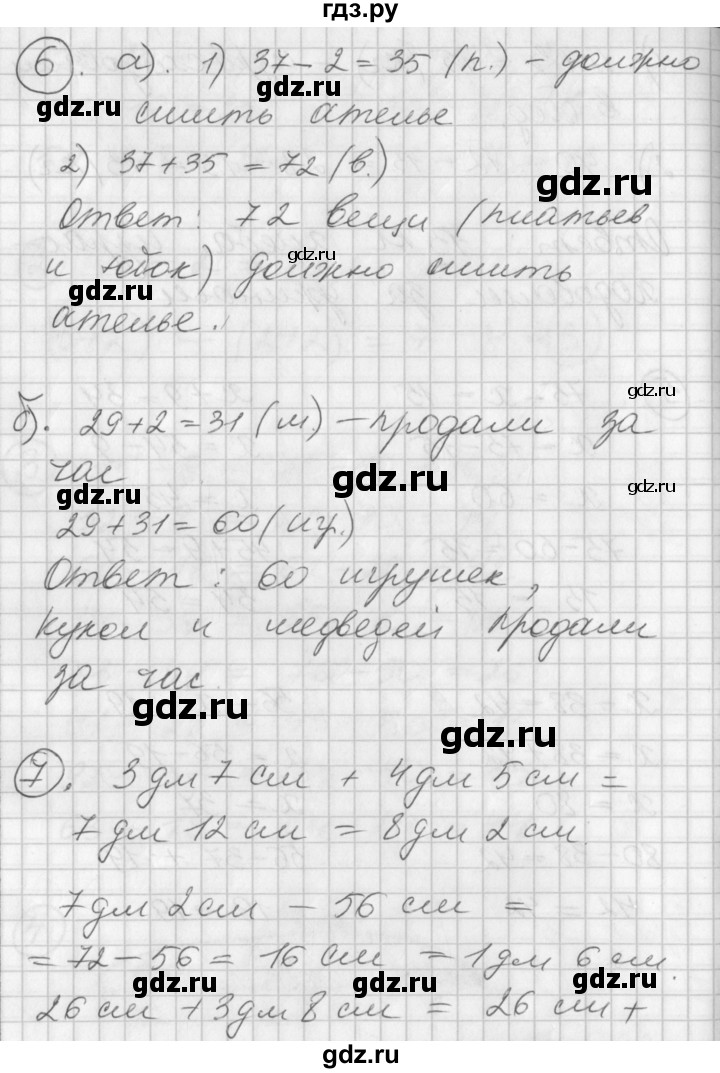 гдз.ру
6. а). 1) 37 - 2 = 35 (п.) - должно
gdz.ru gdz.ru
сшить ателье
2) 37 + 35 = 72 (в.)
gdz.ru
Ответ: 72 вещи (платьев
gdz.ru
и юбок) должно сшить
gdz.ru
ателье.
gdz.ru
б). 29 + 2 = 31 (м.) - продали за
час
gdz.ru gdz.ru gdz.ru
29 + 31 = 60 (игр.)
Ответ: 60 игрушек,
gdz.ru gdz.ru
кукол и медведей продали
за час
gdz.ru
gdz.ru
7. 3 дм 7 см + 4 дм 5 см =
gdz.ru
7 дм 12 см = 8 дм 2 см.
gdz.ru
7 дм 2 см - 56 см =
gdz.ru
= 72 - 56 = 16 см = 1 дм 6 см.
gdz.ru gdz.ru gdz.ru
26 см + 3 дм 8 см = 26 см +
gdz.ru